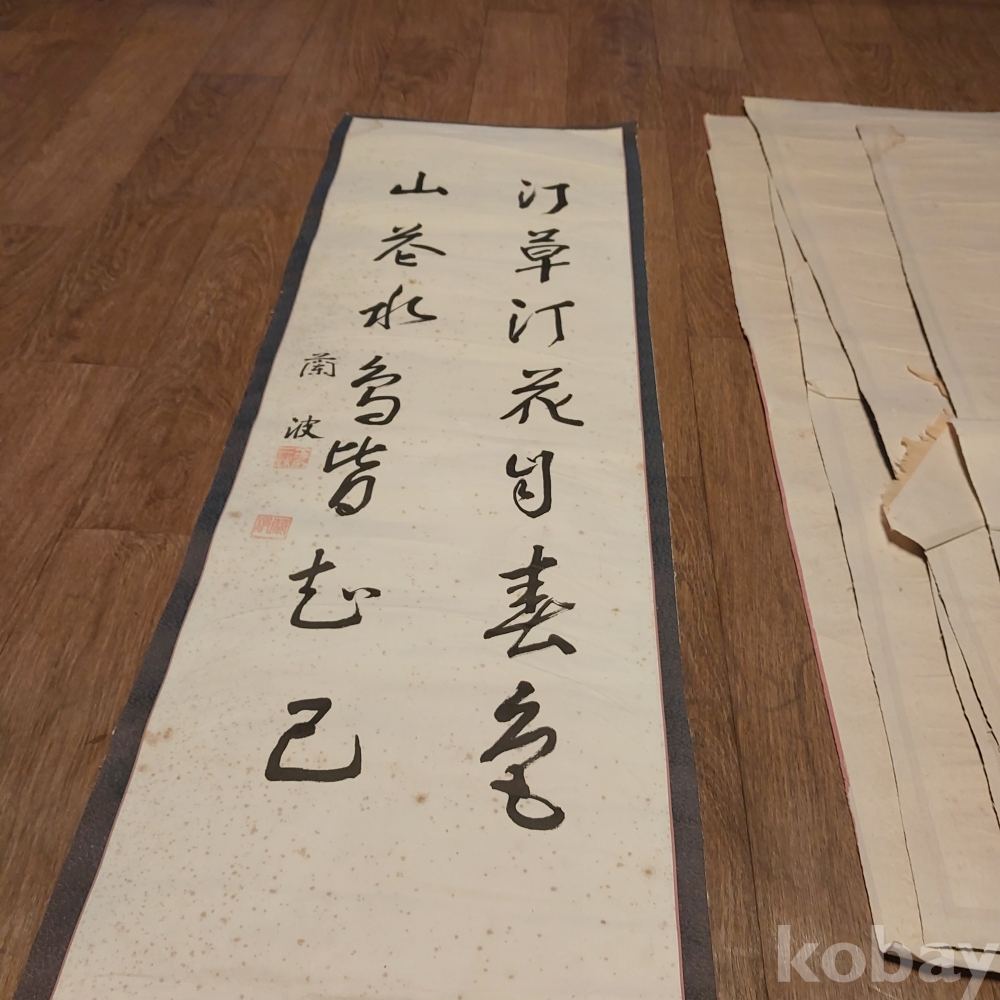 汀草汀花自春色
山花水鳥皆知己
蘭波
kobay